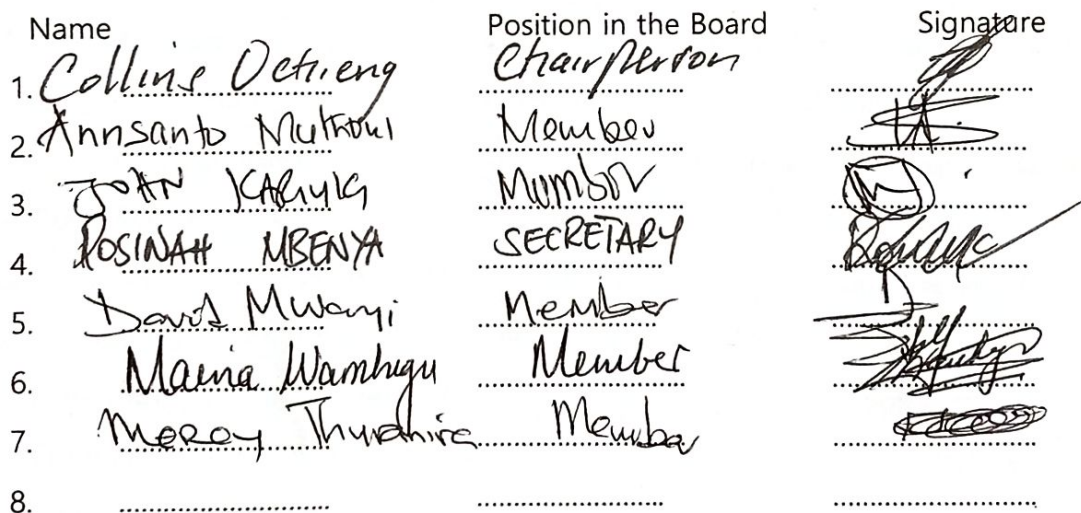 Name Position in the Board Signature
1. Collins Ochieng Chairperson
2. Annsanto Member
3. JOHN Member
4. ROSINAH MBENYA SECRETARY
5. David Mwangi Member
6. Maina Wambugu Member
7. Mercy Thuranira Member
8.